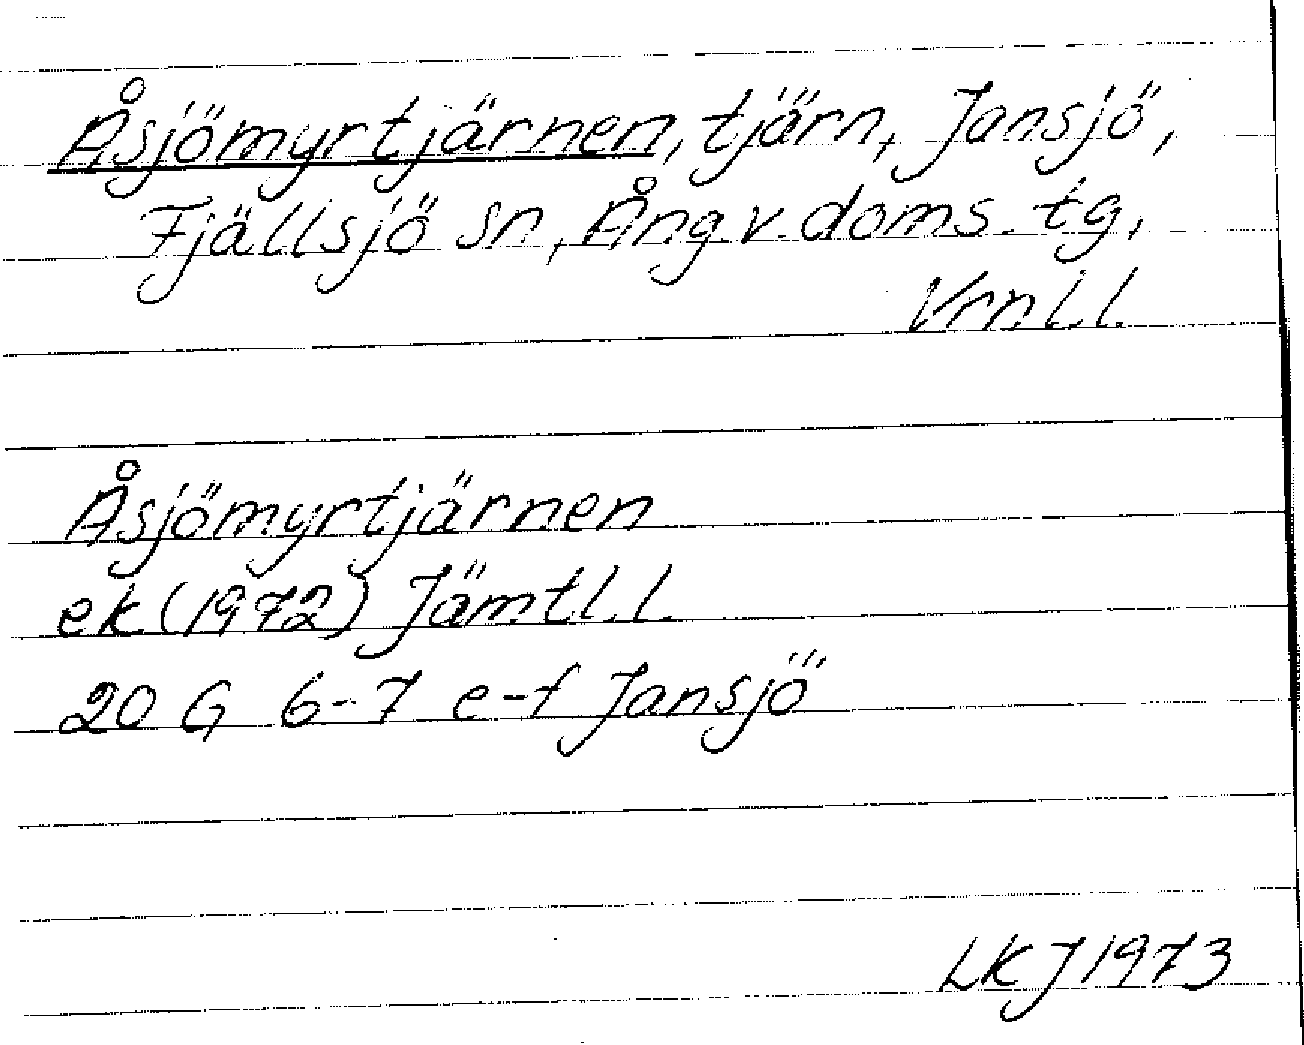 Åsjömyrtjärnen, tjärn, Jansjö,
Fjällsjö sn, Ång v. doms. tg,
Vrnl.l.
Åsjömyrtjärnen
ek (1972) Jämtl.l.
20 G 6-7 e-f Jansjö
LKJ 1973